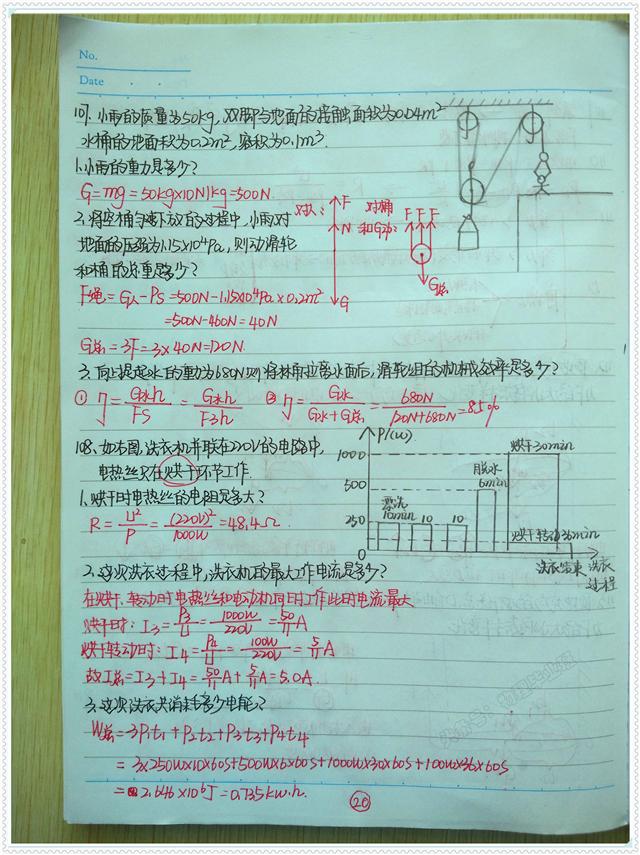 No.
Date
107. 小雨的质量为50kg, 双脚与地面的接触面积为0.04m²
水桶的地面积为0.2m², 容积为0.1m³.
1. 小雨的重力是多少?
G=mg=50kg×10N/kg=500N
对人: F N G
对桶和G动: F F F G总
2. 将空桶匀速下放的过程中, 小雨对
地面的压强为1.15×10⁴Pa, 则动滑轮
和桶的总重是多少?
F绳=G人-PS=500N-1.15×10⁴Pa×0.2m²
=500N-460N=40N
G总=3F=3×40N=120N
3. 向上提起水的重力为680N则将桶拉离水面后, 滑轮组的机械效率是多少?
① η=G水h/FS=G水h/F3h ② η=G水/G水+G总=680N/120N+680N=85%
108. 如右图, 洗衣机并联在220V的电路中,
电热丝只在烘干环节工作.
1. 烘干时电热丝的电阻是多大?
R=U²/P=(220V)²/1000W=48.4Ω
P/(w)
1000
500
250
漂洗
10min
10
10
脱水
6min
烘干30min
烘干转动36min
洗衣结束
洗衣
过程
2. 这次洗衣过程中, 洗衣机的最大工作电流是多少?
在烘干、转动时电热丝和电动机同时工作此时电流最大
烘干时: I3=P3/U=1000W/220V=50/11A
烘干转动时: I4=P4/U=100W/220V=5/11A
故I总=I3+I4=50/11A+5/11A=5.0A
3. 这次洗衣共消耗多少电能?
W总=3P1t1+P2t2+P3t3+P4t4
=3×250W×10×60s+500W×6×60s+1000W×30×60s+100W×36×60s
=2.646×10⁶J=0.735kw.h.
20